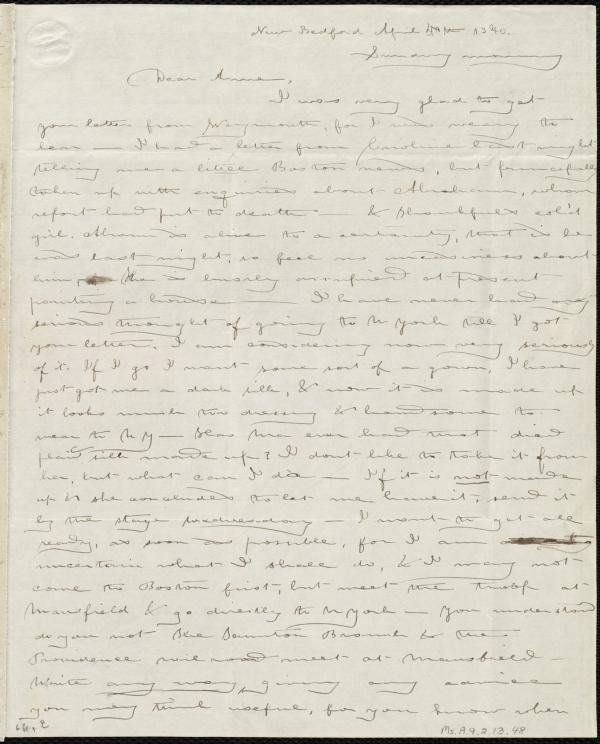 New Bedford April 1840.
Sunday morning
Dear Anne,
I was very glad to get
your letter from Weymouth, for I was weary to
hear — I had a letter from Caroline last night
telling me a little Boston news, but principally
taken up with enquiries about Abraham, whom
report had put to death — & Bloomfield's col'd
girl. Abram is alive to a certainty, that is he
was last night, so feel no uneasiness about
him, He is busily occupied at present
painting a house — I have never had any
serious thought of going to N York till I got
your letter, I am considering now very seriously
of it. If I go I want some sort of a gown, I have
just got me a dark silk, & now it is made up
it looks much too dressy & handsome to
wear to NY — Has Ma ever had that died
plaid silk made up? I dont like to take it from
her, but what can I do — If it is not made
up & she concludes to let me have it, send it
by the stage Wednesday — I want to get all
ready, as soon as possible, for I am
uncertain what I shall do, & I may not
come to Boston first, but meet the troop at
Mansfield & go directly to N York — You understand
do you not the Taunton Branch & the
Providence rail road meet at Mansfield —
Write any way, giving any advice
you may think useful, for you know when
Ms.A.9.2.13.48